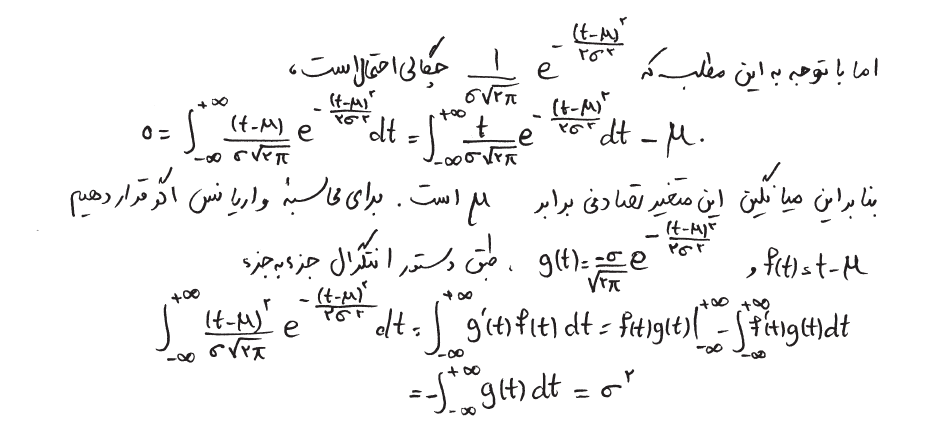 اما با توجه به این مطلب که $\frac{1}{\sigma\sqrt{۲\pi}} e^{-\frac{(t-\mu)^۲}{۲\sigma^۲}}$ چگالی احتمال است،
$0 = \int_{-\infty}^{+\infty} \frac{(t-\mu)}{\sigma\sqrt{۲\pi}} e^{-\frac{(t-\mu)^۲}{۲\sigma^۲}} dt = \int_{-\infty}^{+\infty} \frac{t}{\sigma\sqrt{۲\pi}} e^{-\frac{(t-\mu)^۲}{۲\sigma^۲}} dt - \mu.$
بنابراین میانگین این متغیر تصادفی برابر $\mu$ است. برای محاسبهٔ واریانس اگر قرار دهیم
$f(t) = t-\mu$ و $g(t) = \frac{-\sigma}{\sqrt{۲\pi}} e^{-\frac{(t-\mu)^۲}{۲\sigma^۲}}$، طبق دستور انتگرال جزءبه‌جزء
$\int_{-\infty}^{+\infty} \frac{(t-\mu)^۲}{\sigma\sqrt{۲\pi}} e^{-\frac{(t-\mu)^۲}{۲\sigma^۲}} dt = \int_{-\infty}^{+\infty} g'(t) f(t) dt = f(t)g(t) \Big|_{-\infty}^{+\infty} - \int_{-\infty}^{+\infty} f'(t)g(t)dt$
$= -\int_{-\infty}^{+\infty} g(t) dt = \sigma^۲$